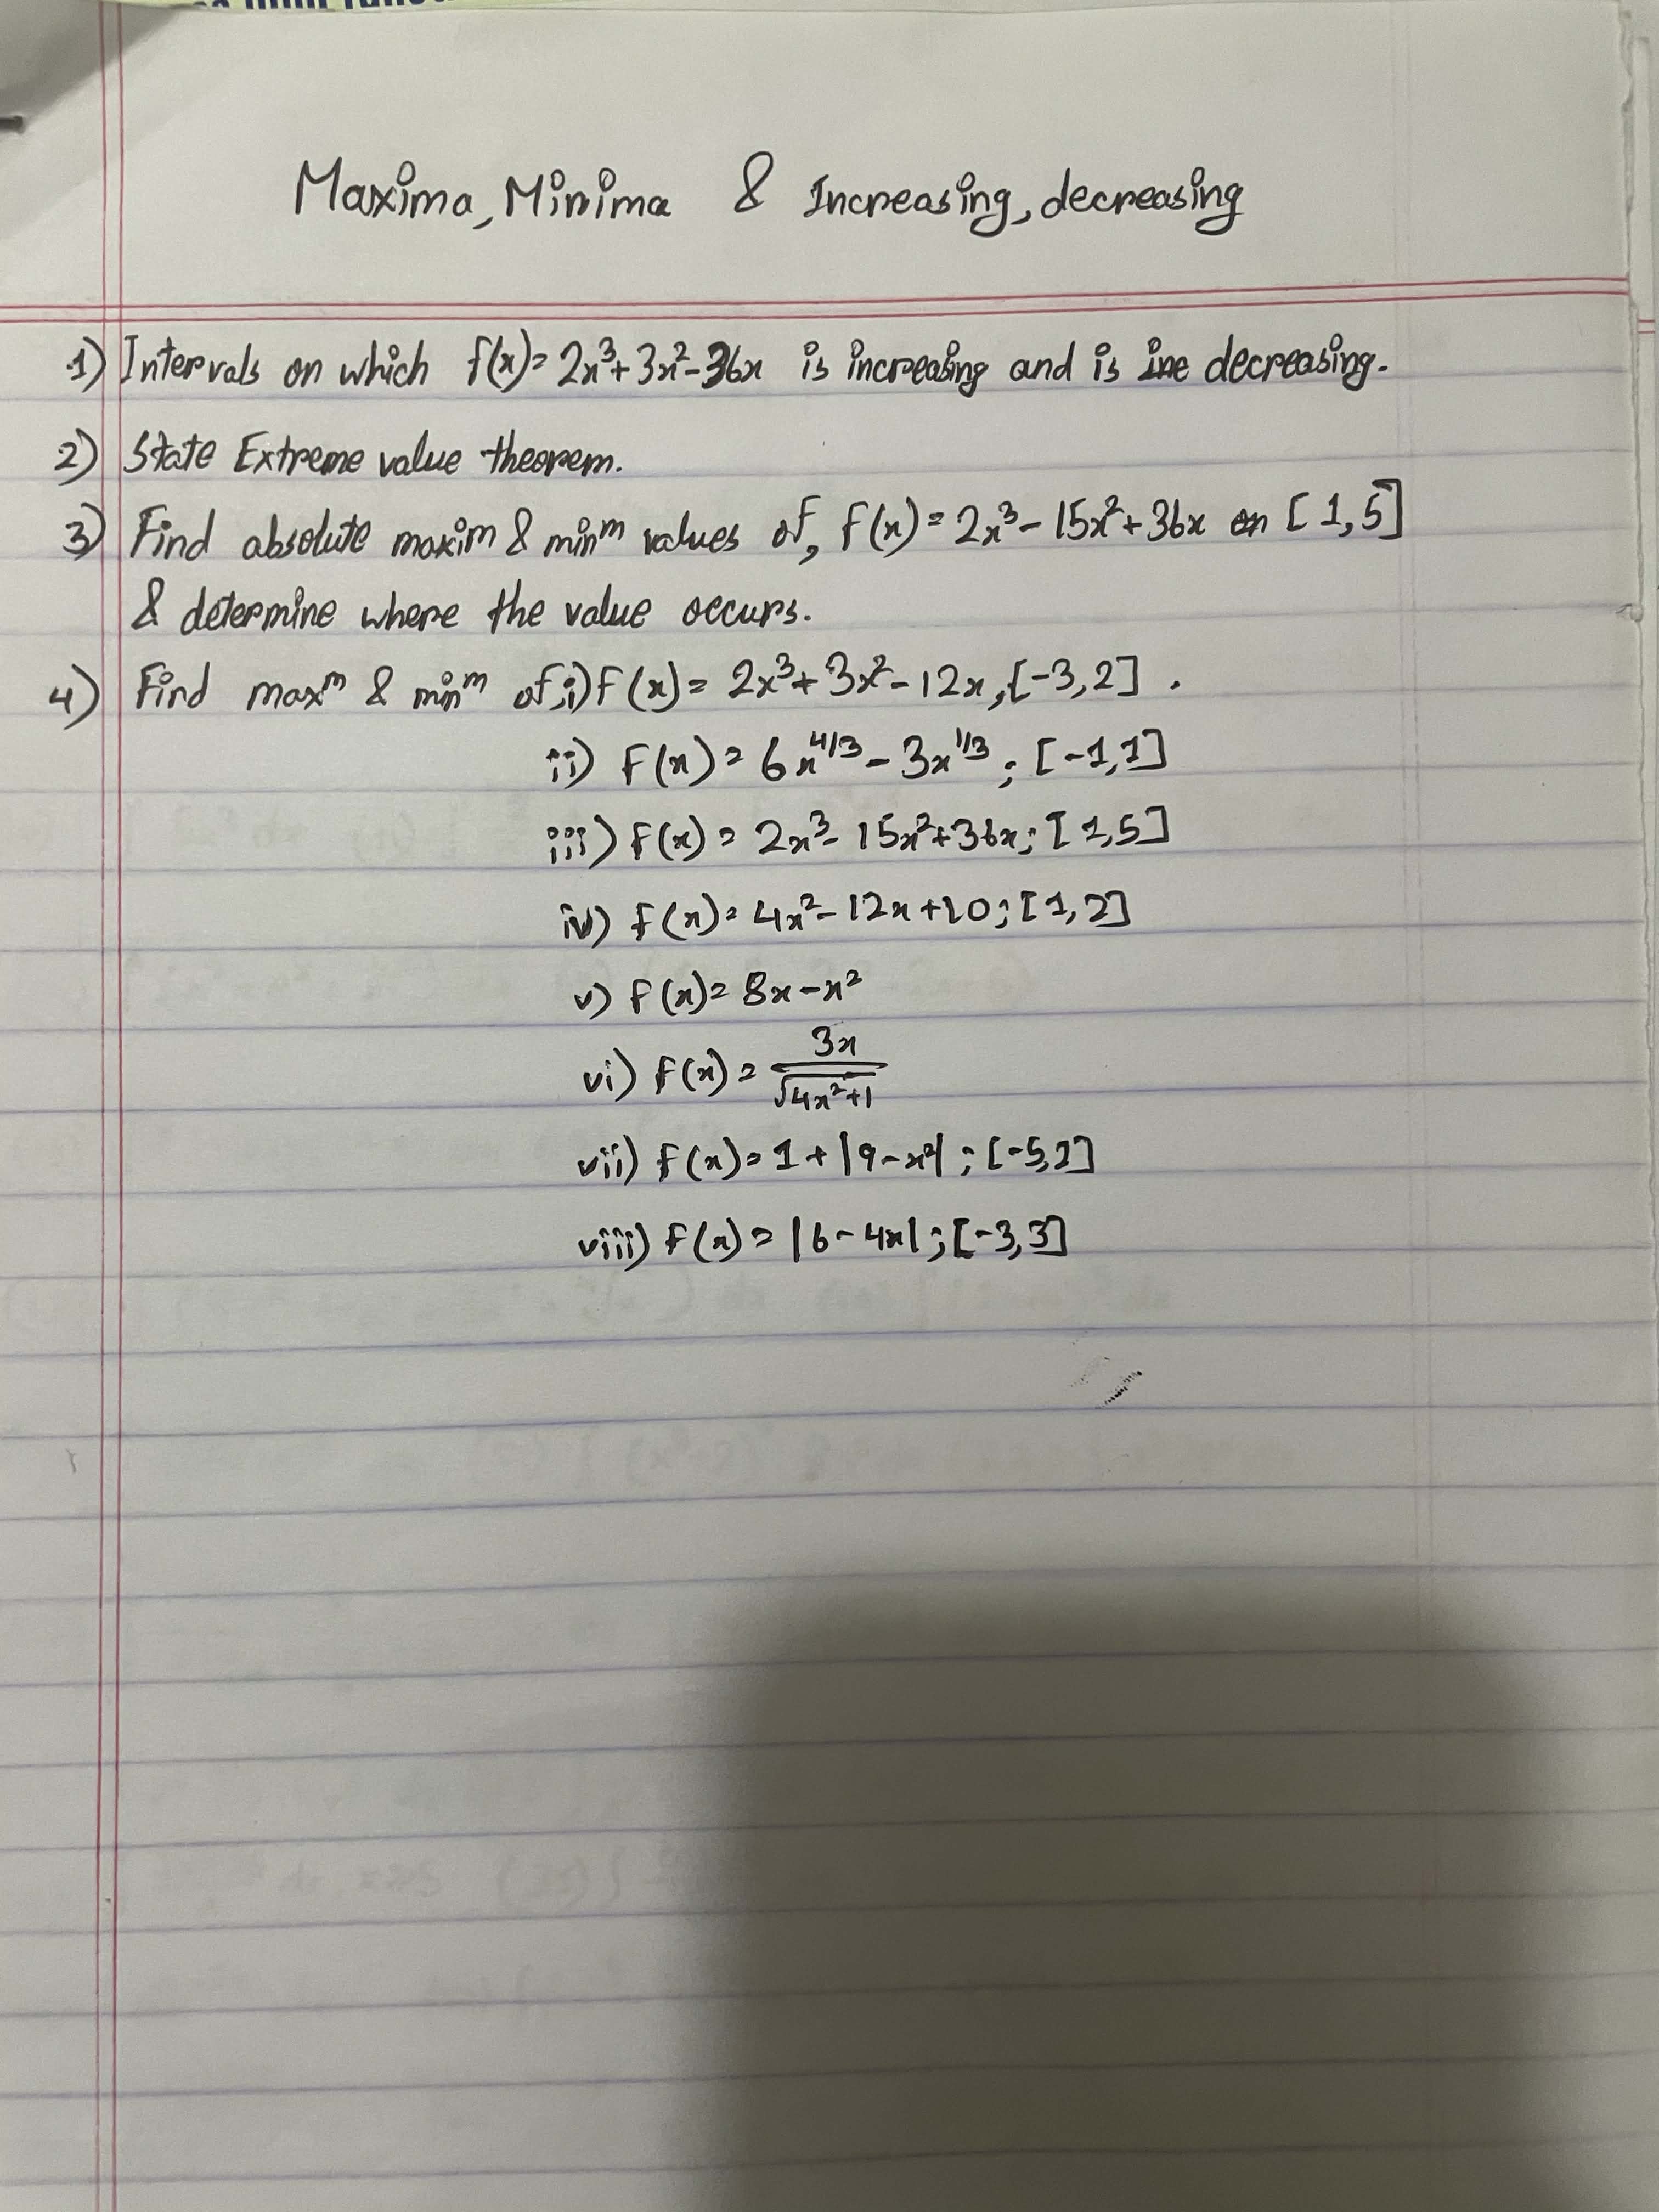 Maxima, Minima & Increasing, decreasing
1) Intervals on which f(x)= 2x³+3x²-36x is increasing and is decreasing.
2) State Extreme value theorem.
3) Find absolute maxim & minᵐ values of, f(x)= 2x³-15x²+36x on [1,5]
& determine where the value occurs.
4) Find maxᵐ & minᵐ of; i) f(x)= 2x³+3x²-12x, [-3,2].
ii) f(x)= 6x^4/3 - 3x^1/3; [-1,1]
iii) f(x)= 2x³-15x²+36x; [1,5]
iv) f(x)= 4x²-12x+10; [1,2]
v) f(x)= 8x-x²
vi) f(x)= 3x/√4x²+1
vii) f(x)= 1+|9-x²|; [-5,1]
viii) f(x)= |6-4x|; [-3,3]